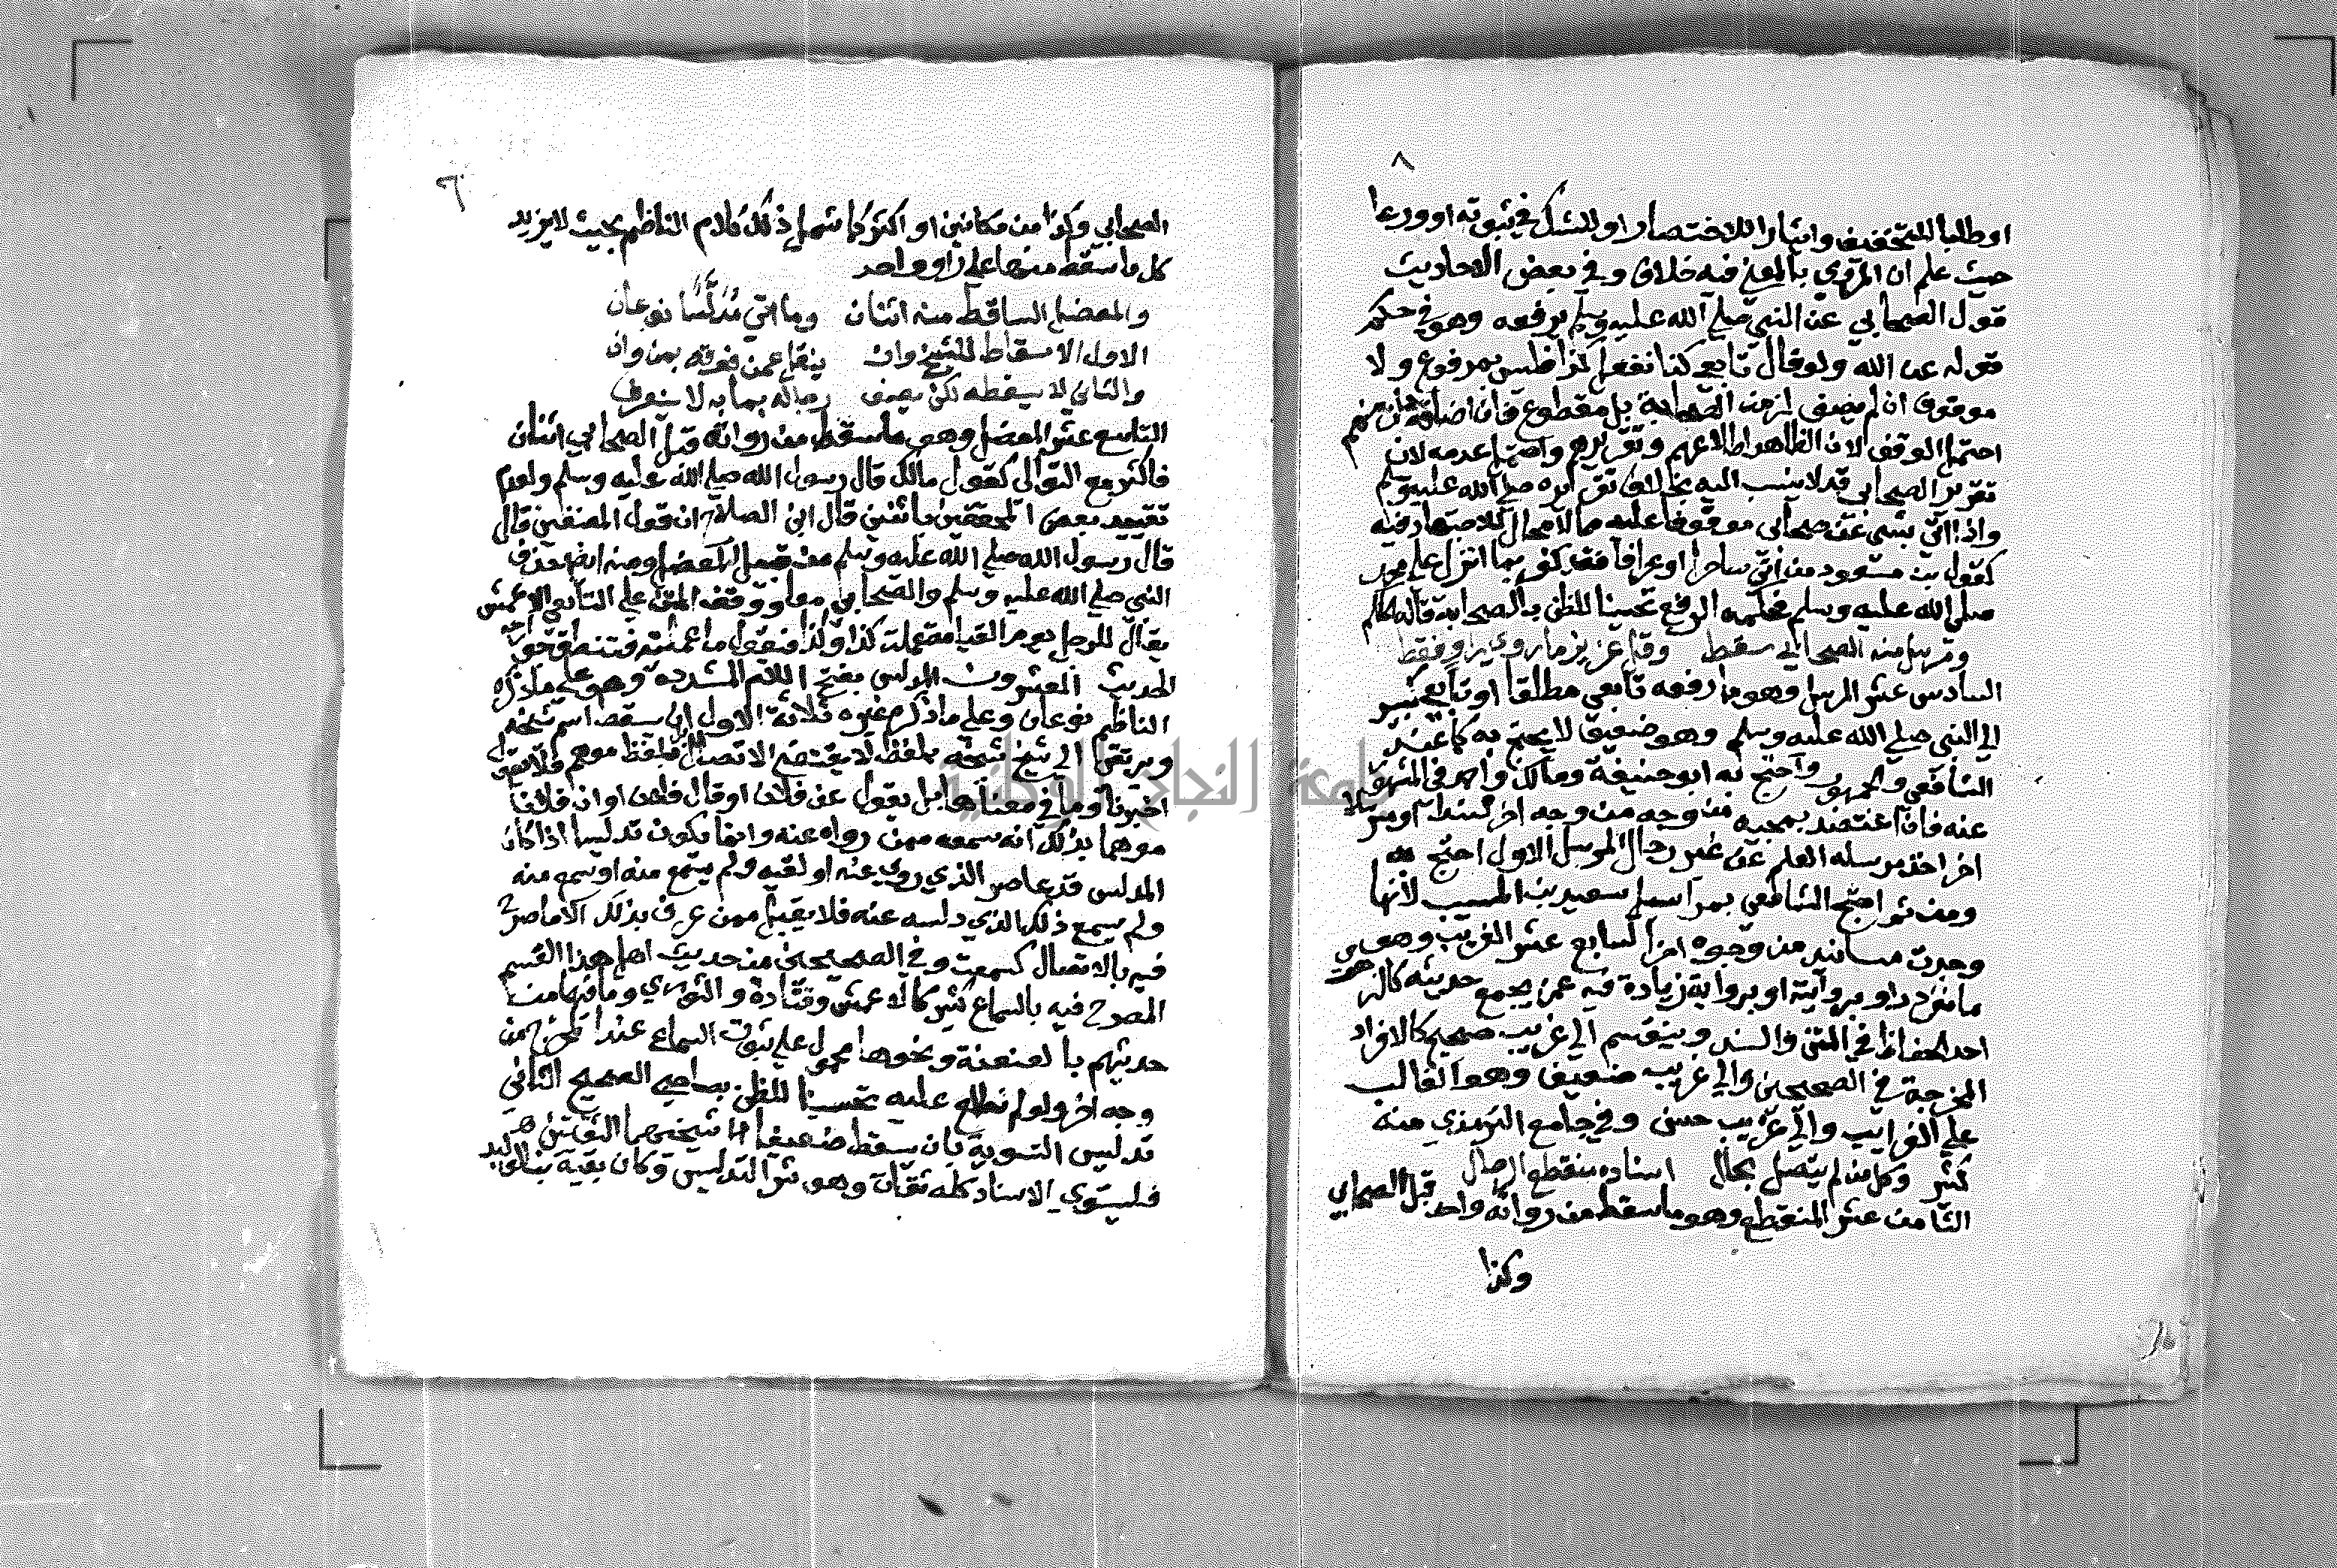 ٨
او طلبا للتخفيف وايثارا للاختصار او للشك في ثبوته او ورعا
حيث علم ان المروي بالمعنى فيه خلاف وفي بعض الاحاديث
قول الصحابي عن النبي صلى الله عليه وسلم يرفعه وهو في حكم
قوله عن الله ولو قال تابعي كنا نفعل كذا فليس بمرفوع ولا
موقوف ان لم يضفه لزمن الصحابة بل مقطوع فان اضافه لزمنهم
احتمل الوقف لان الظاهر اطلاعهم وتقريرهم واحتمل عدمه لان
تقرير الصحابي قد لا ينسب اليه بخلاف تقريره صلى الله عليه وسلم
واذا اتى شيء عن صحابي موقوفا عليه مما لا مجال للاجتهاد فيه
كقول بن مسعود من اتى ساحرا او عرافا فقد كفر بما انزل على محمد
صلى الله عليه وسلم فحكمه الرفع تحسينا للظن بالصحابة قاله الحاكم
ومرسل منه الصحابي سقط وقل غريب ما روى راو فقط
السادس عشر المرسل وهو ما رفعه تابعي مطلقا او تابعي كبير
الى النبي صلى الله عليه وسلم وهو ضعيف لا يحتج به كما عند
الشافعي والجمهور واحتج به ابو حنيفة ومالك واحمد في المشهور
عنه فان اعتضد بمجيه من وجه من وجه اخر مسندا او مرسلا
اخر اخذ مرسله العلم عن غير رجال المرسل الاول احتج به
ومن ثم احتج الشافعي بمراسيل سعيد بن المسيب لانها
وجدت مسانيد من وجوه اخر السابع عشر الغريب وهو
ما نفرد راو بروايته او برواية زيادة فيه عمن يجمع حديثه كالزهري
احد الحفاظ في المتن والسند وينقسم الى غريب صحيح كالافراد
المخرجة في الصحيحين والى غريب ضعيف وهو الغالب
على الغرايب والى غريب حسن وفي جامع الترمذي منه
كثير وكل من لم يتصل بحال اسناده منقطع الاوصال
الثامن عشر المنقطع وهو ما سقط من رواته واحد قبل الصحابي
وكذا
٦
الصحابي وكذا من مكانين او اكثر كما شمل ذلك كلام الناظم بحيث لا يزيد
كل ما سقط منها على راو واحد
والمعضل الساقط منه اثنان وما اتى مُدَلَّسًا نوعان
الاول الاسقاط للشيخ وان ينقل عمن فوقه بعن وان
والثاني لا يسقطه لكن يصف رجاله بما به لا ينعرف
التاسع عشر المعضل وهو ما سقط من رواته قبل الصحابي اثنان
فاكثر مع التوالي كقول مالك قال رسول الله صلى الله عليه وسلم ولعدم
تقييد بعض المحققين باثنين قال ابن الصلاح ان قول المصنفين قال
قال رسول الله صلى الله عليه وسلم من قبيل المعضل ومنه ايضا حذف
النبي صلى الله عليه وسلم والصحابي معا ووقف المتن على التابعي كالاعمش
يقال للرجل يوم القيامة عملت كذا وكذا فيقول ما عملته فتنطق جوارحه
الحديث العشرون المدلس بفتح اللام المشددة وهو على ما ذكره
الناظم نوعان وعلى ما ذكره غيره ثلاثة الاول ان يسقط اسم شيخه
ويرتقي الى شيخ شيخه بلفظ لا يقتضي الاتصال بلفظ موهم فلا يقول
اخبرنا وما في معناها بل يقول عن فلان او قال فلان او ان فلانا
موهما بذلك انه سمعه ممن رواه عنه وانما يكون تدليسا اذا كان
المدلس قد عاصر الذي روى عنه او لقيه ولم يسمع منه او سمع منه
ولم يسمع ذلك الذي دلسه عنه فلا يقبل ممن عرف بذلك الا ما صرح
فيه بالاتصال كسمعت وفي الصحيحين من حديث اهل هذا القسم
المصرح فيه بالسماع كثير كالاعمش وقتادة والثوري وما فيها من
حديثهم بالعنعنة ونحوها محمول على ثبوت السماع عند المخرج من
وجه اخر ولو لم نطلع عليه تحسينا للظن بصاحبي الصحيح الثاني
تدليس التسوية بان يسقط ضعيفا شيخهما الثقتين
فليستوي الاسناد كله ثقات وهو شر التدليس وكان بقية بن الوليد
جامعة النجاح الوطنية